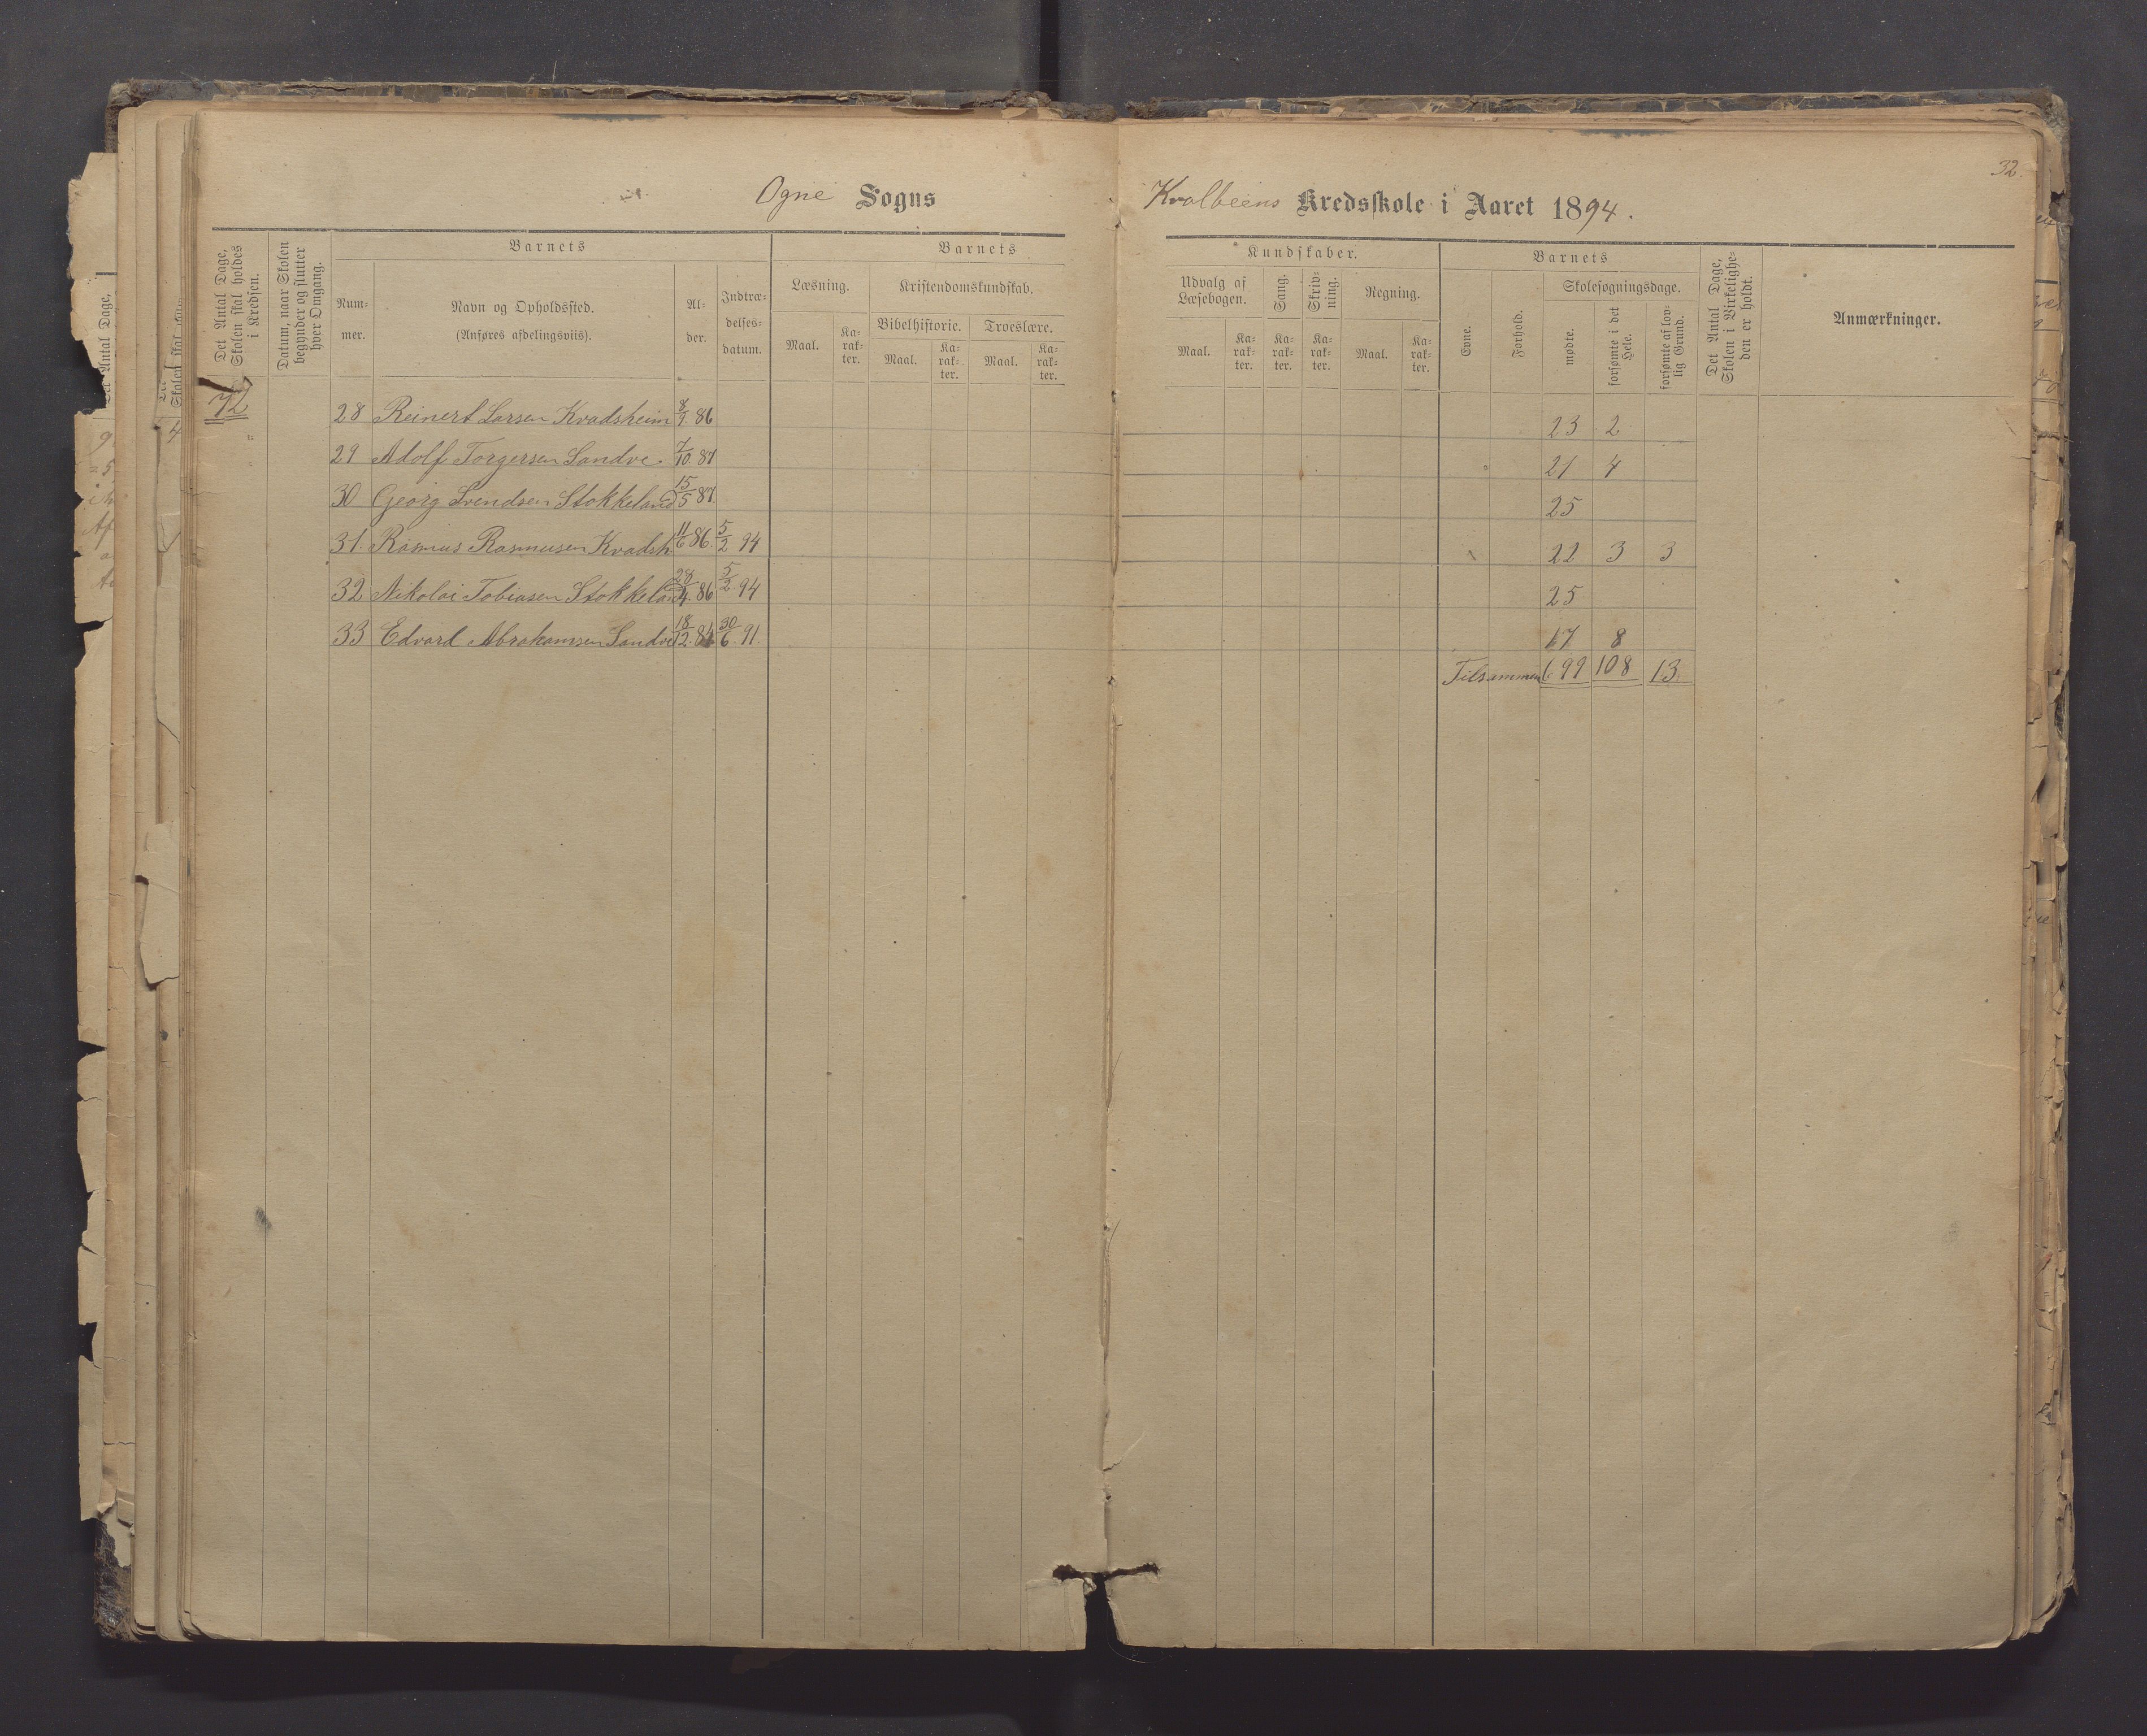 32.
Ogne Sogns
Kvalbeens Kredsskole i Aaret 1894.
Det Antal Dage, Skolen skal holdes i Kredsen.
Datum, naar Skolen begynder og slutter hver Omgang.
Barnets
Num-
mer.
Navn og Opholdssted.
(Anføres afdelingsviis).
Al-
der.
Indtræ-
delses-
datum.
Barnets
Læsning.
Maal.
Ka-
rak-
ter.
Kristendomskundskab.
Bibelhistorie.
Troeslære.
Maal.
Ka-
rak-
ter.
Maal.
Ka-
rak-
ter.
Kundskaber.
Udvalg af
Læsebogen.
Sang.
Skriv-
ning.
Regning.
Maal.
Ka-
rak-
ter.
Ka-
rak-
ter.
Ka-
rak-
ter.
Maal.
Ka-
rak-
ter.
Barnets
Evne.
Forhold.
Skolesøgningsdage.
mødte.
forsømte i det Hele.
forsømte af lov-
lig Grund.
Det Antal Dage, Skolen i Virkelighe-
den er holdt.
Anmærkninger.
72
28 Reinert Larsen Kvadsheim 8/9. 86 23 2
29 Adolf Torgersen Sandve. 7/10. 87 21 4
30 Georg Svendsen Stokkeland 15/5 87. 25
31. Rasmus Rasmusen Kvadsh 11/6 86. 5/2 94 22 3 3
32 Nikolai Tobiasen Stokkeland 28/4. 86 5/2. 94 25
33 Edvard Abrahamsen Sandve 18/12. 84 30/6. 91. 17 8
Tilsammen 699 108 13.